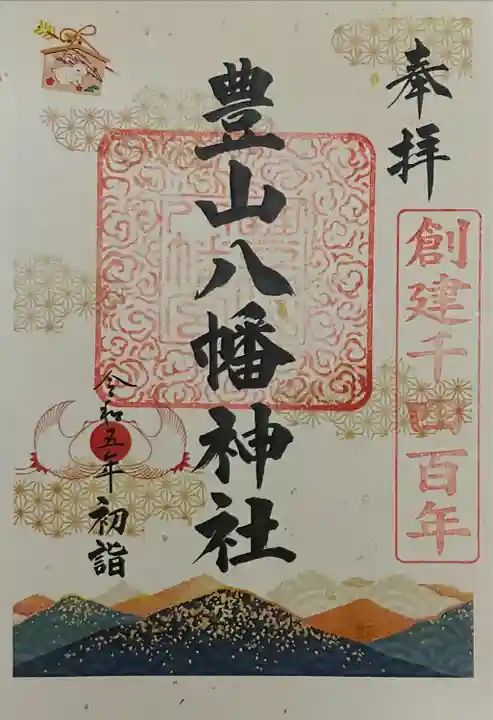 奉拝
創建千四百年
豊山八幡神社
令和五年 初詣